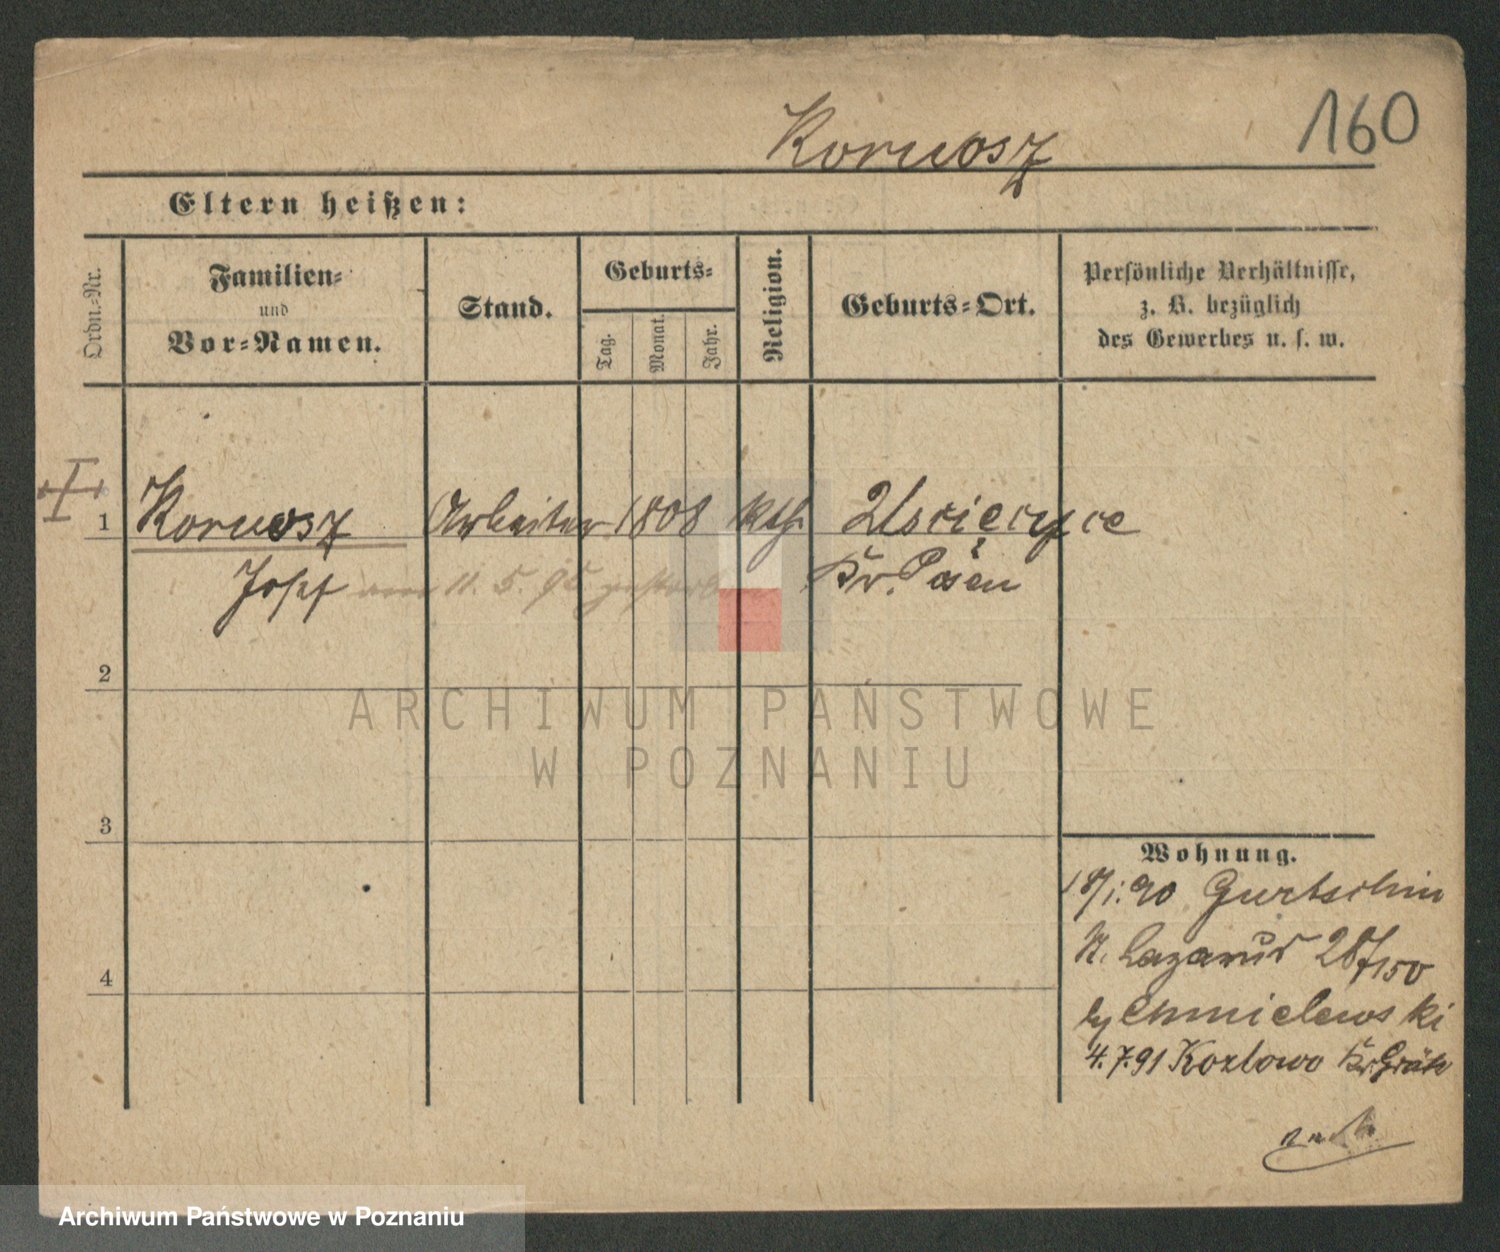 160
Koruosz
Eltern heißen:
Ordn.-Nr.
Familien-
und
Vor-Namen.
Stand.
Geburts-
Tag.
Monat.
Jahr.
Religion.
Geburts-Ort.
Persönliche Verhältnisse,
z. B. bezüglich
des Gewerbes u. s. w.
1 Koruosz Arbeiter 1808 kth.
Josef am 11. 5. gestorben Kr. Posen
2
3
4
Wohnung.
18/1.90 Gurtschin
St. Lazarus 28/150
Chmielewski
4.7.91 Kozlowo Kr Grätz
ARCHIWUM PAŃSTWOWE
W POZNANIU
Archiwum Państwowe w Poznaniu